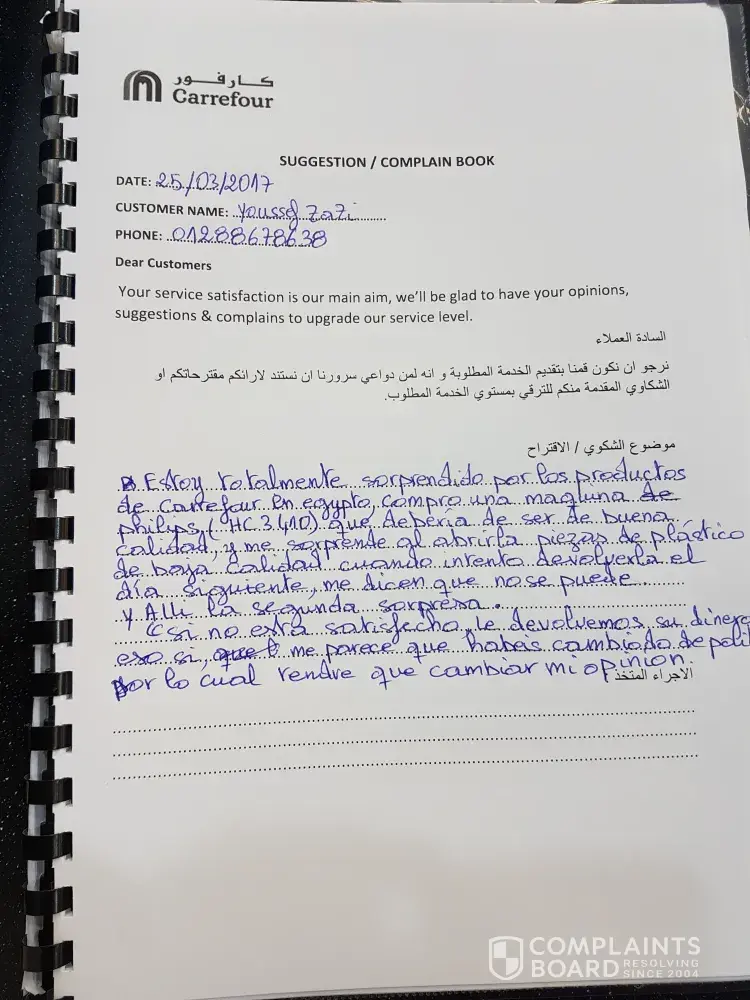 كارفور
Carrefour
SUGGESTION / COMPLAIN BOOK
DATE: 25/03/2017
CUSTOMER NAME: Youssef ZaZi
PHONE: 01288678638
Dear Customers
Your service satisfaction is our main aim, we'll be glad to have your opinions,
suggestions & complains to upgrade our service level.
السادة العملاء
نرجو ان نكون قمنا بتقديم الخدمة المطلوبة و انه لمن دواعي سرورنا ان نستند لارائكم مقترحاتكم او
الشكاوي المقدمة منكم للترقي بمستوي الخدمة المطلوب.
موضوع الشكوي / الاقتراح
Estoy totalmente sorprendido por los productos
de carrefour en egypto, compro una maquina de
philips, (HC 3410) que deberia de ser de buena
calidad, y me sorprende al abrirla piezas de plástico
de baja calidad cuando intento devolverla el
día siguiente, me dicen que no se puede.
y Alli la segunda sorpresa.
Si no está satisfecho le devolvemos su dinero
eso si, que me parece que habeis cambiado de poli
Por lo cual rendre que cambiar mi opinion.
الاجراء المتخذ
COMPLAINTS
BOARD RESOLVING SINCE 2004